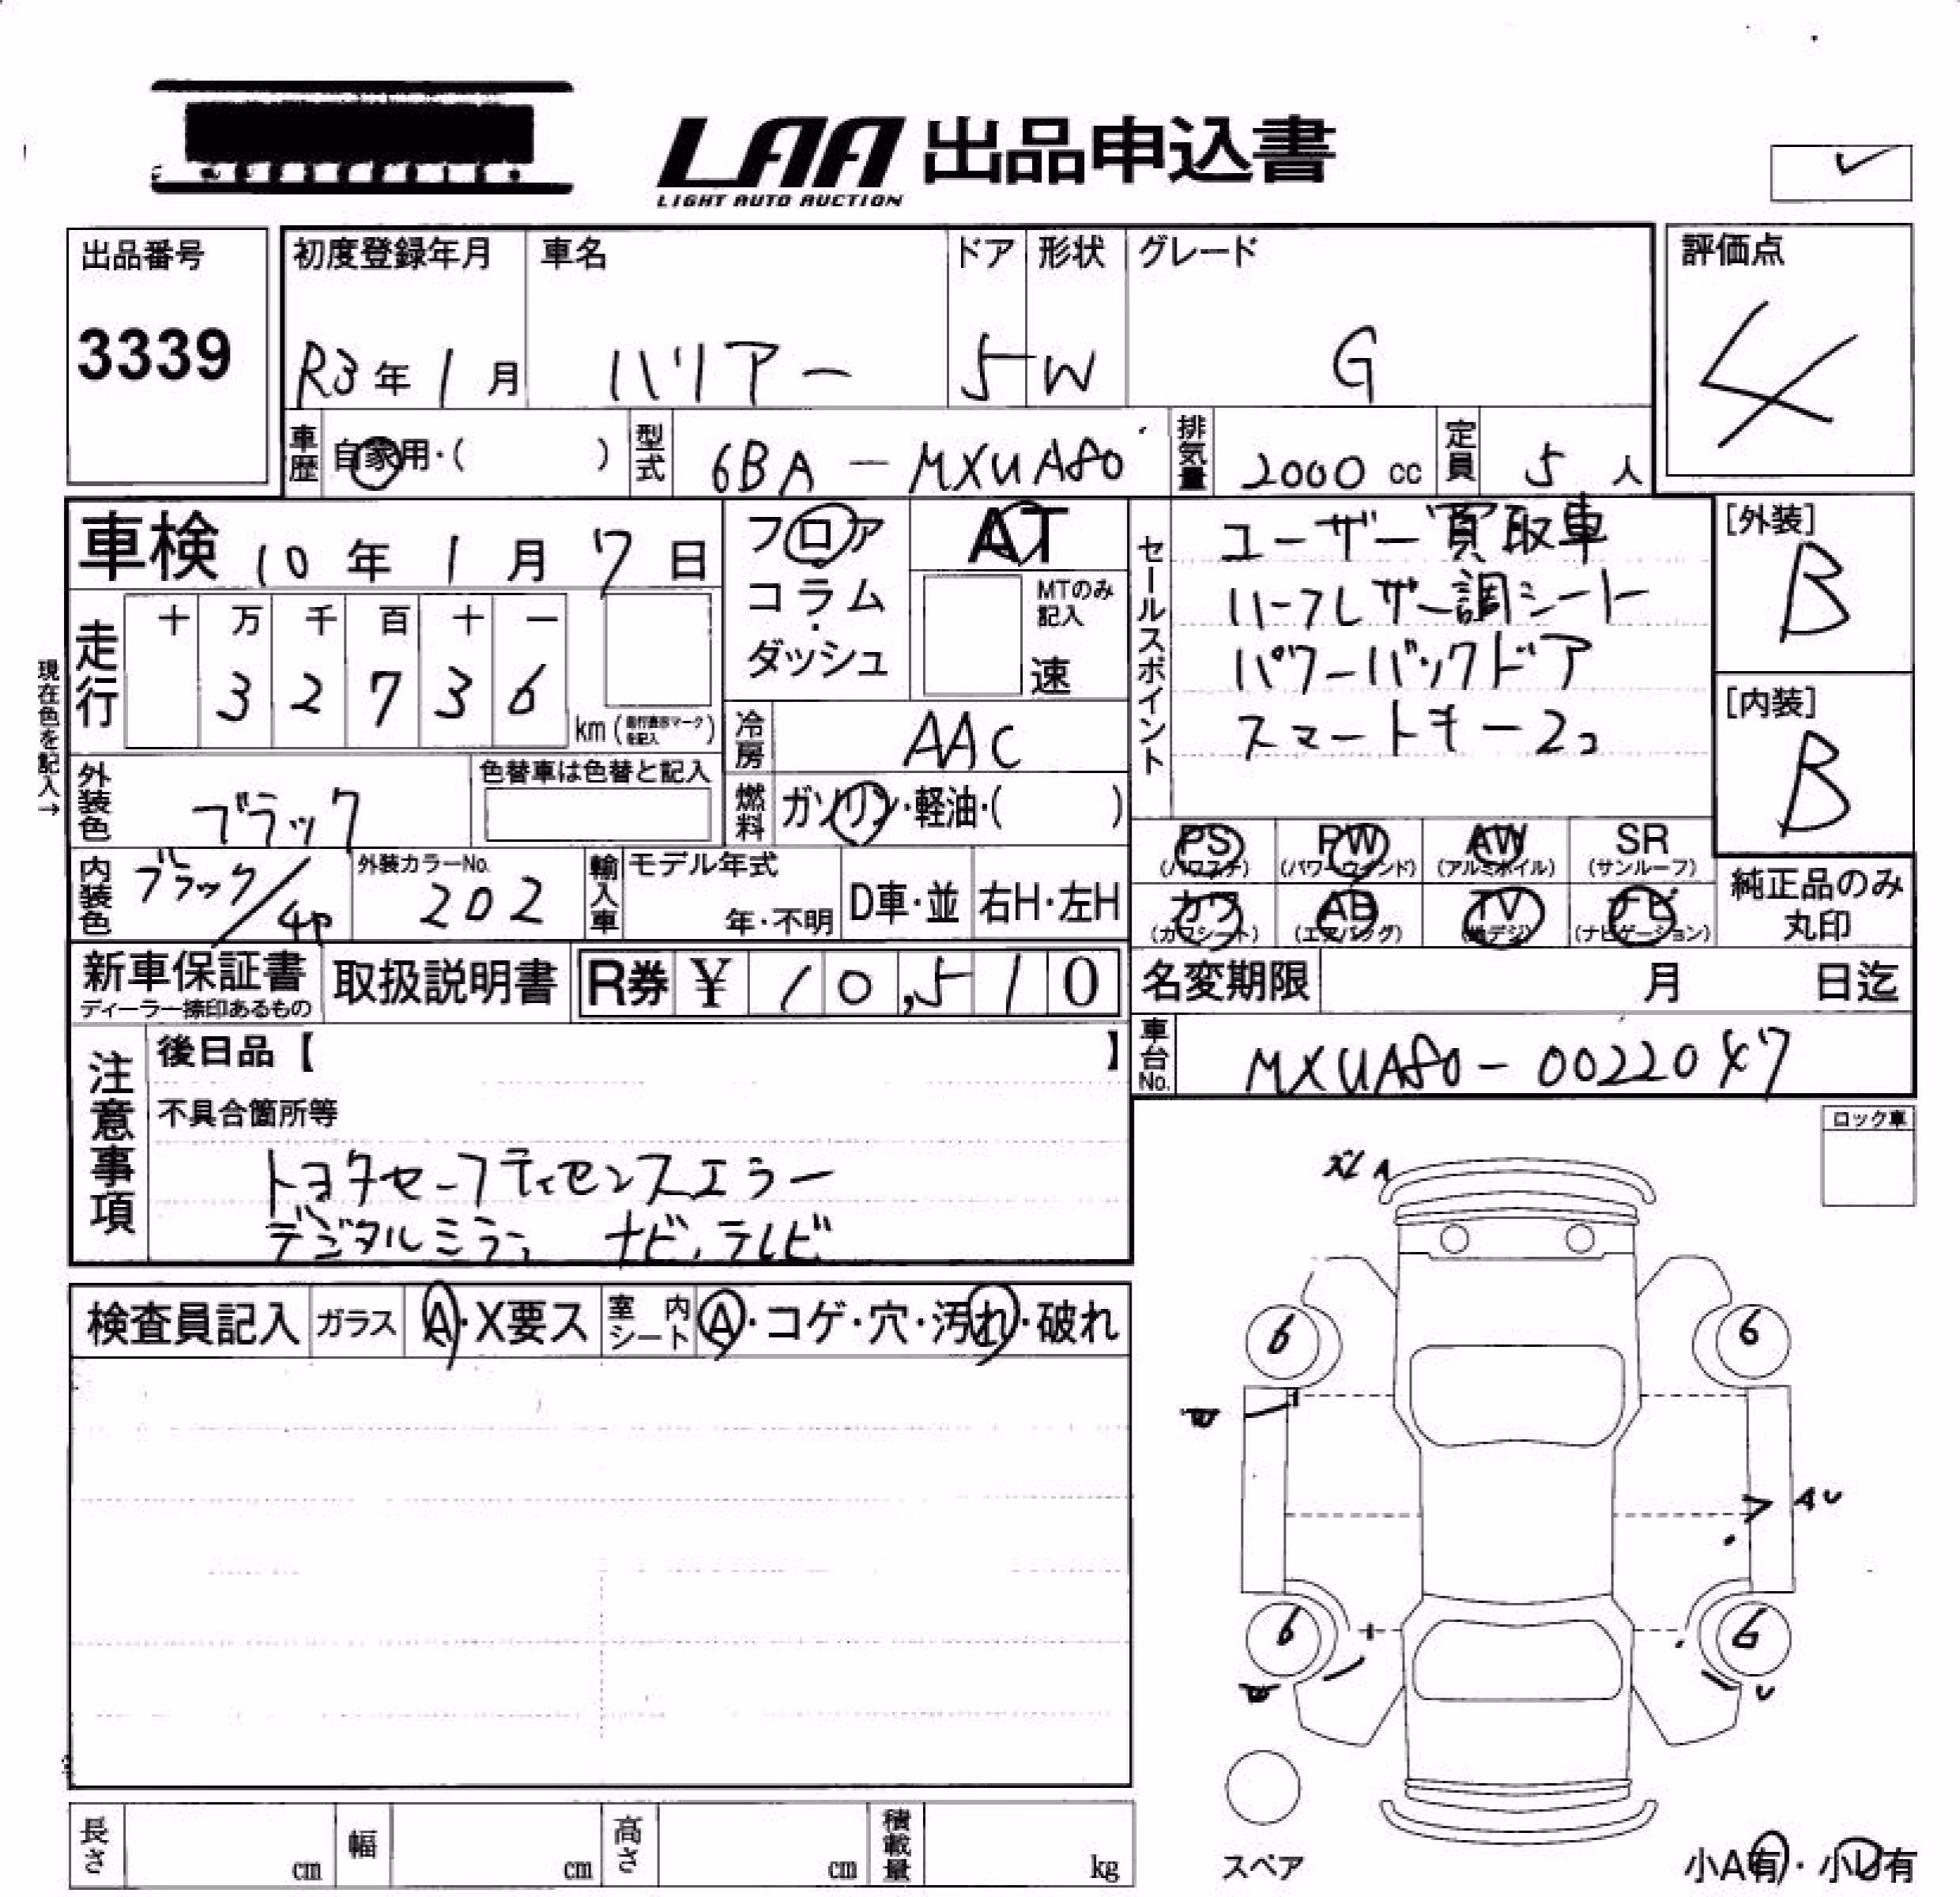 LAA 出品申込書
LIGHT AUTO AUCTION
出品番号
3339
初度登録年月
R3年1月
車名
ハリアー
ドア
5
形状
W
グレード
G
評価点
4
車歴
自家用・( )
型式
6BA-MXUA80
排気量
2000 cc
定員
5人
車検 10年1月7日
フロア
コラム
・
ダッシュ
AT
MTのみ
記入
速
セールスポイント
ユーザー買取車
ハーフレザー調シート
パワーバックドア
スマートキー2コ
[外装]
B
[内装]
B
現在色を記入→
走行
十 万 千 百 十 一
3 2 7 3 6
km (走行表示マークを記入)
冷房
AAC
燃料
ガソリン・軽油・( )
外装色
ブラック
色替車は色替と記入
内装色
ブラック/4P
外装カラーNo.
202
輸入車
モデル年式
年・不明
D車・並
右H・左H
PS
(パワステ)
PW
(パワーウィンド)
AW
(アルミホイル)
SR
(サンルーフ)
カワ
(カワシート)
AB
(エアバッグ)
TV
(地デジ)
ナビ
(ナビゲーション)
純正品のみ
丸印
新車保証書
ディーラー捺印あるもの
取扱説明書
R券 ¥ 10,510
名変期限
月 日迄
車台No.
MXUA80-0022047
注意事項
後日品【 】
不具合箇所等
トヨタセーフティセンスエラー
デジタルミラー ナビ、テレビ
ロック車
検査員記入
ガラス
A・X要ス
室内
シート
A・コゲ・穴・汚れ・破れ
A
6
6
AU
6
6
U
スペア
小A有・小U有
長さ
cm
幅
cm
高さ
cm
積載量
kg